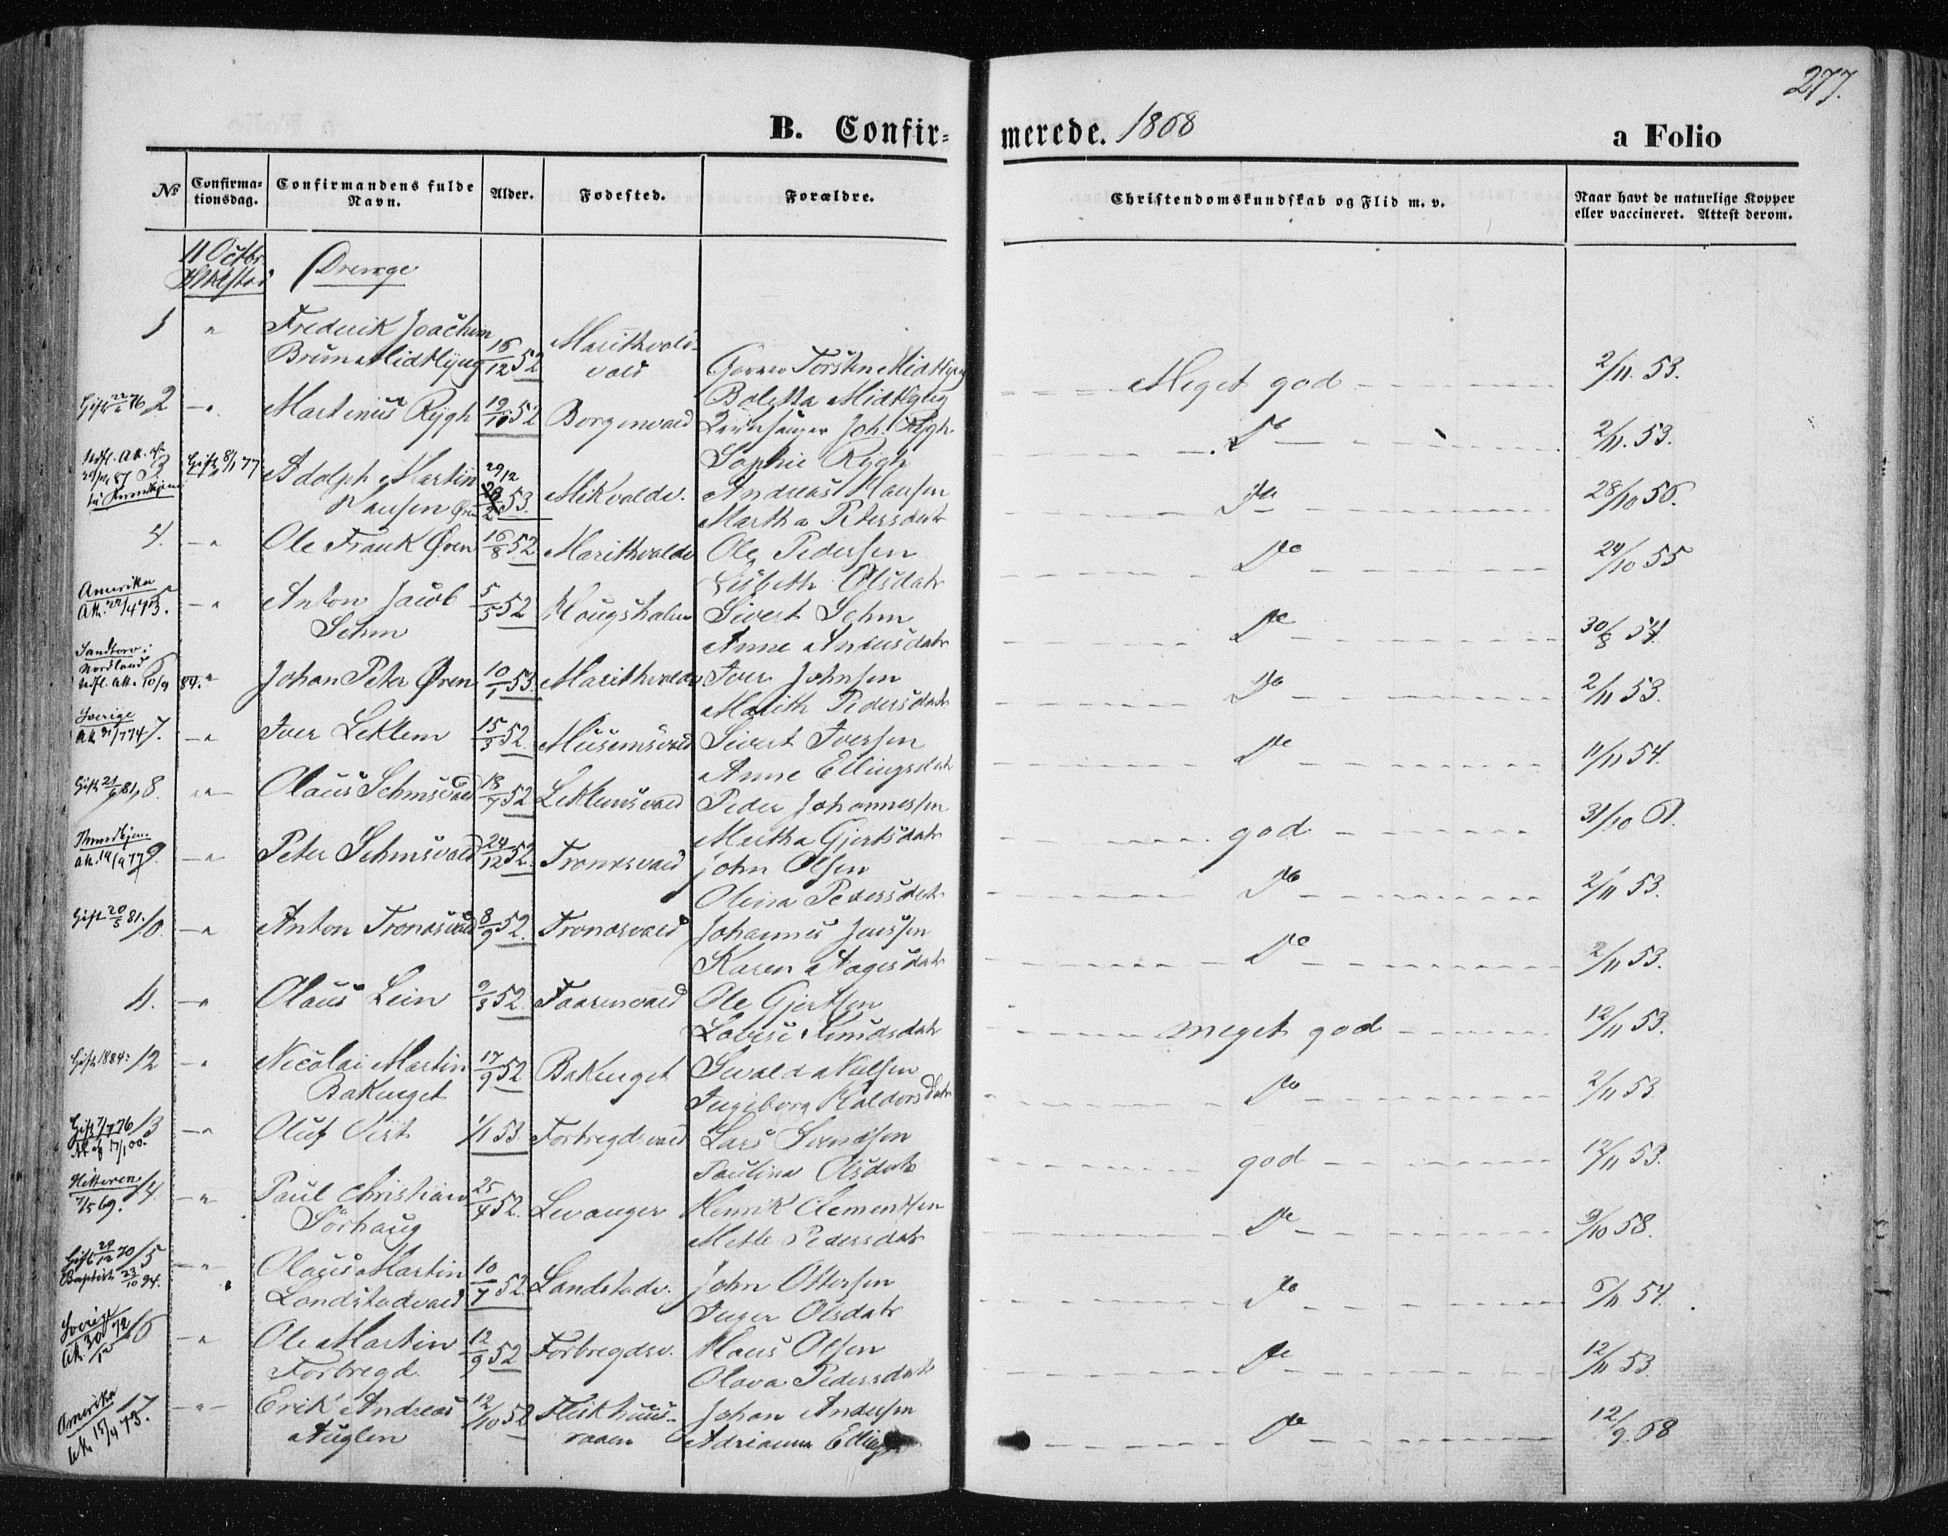 277.
B. Confir- merede. 1868 a Folio
No Confirmationsdag. Confirmandens fulde Navn. Alder. Fødested. Forældre. Christendomskundskab og Flid m. v. Naar havt de naturlige Kopper eller vaccineret. Attest derom.
11 Octbr. Drenge
1 " Frederik Joachim Brun Midtlyng 16/12 52 Garver Torsten Midtlyng Boletta Midtlyng Meget god 2/11 53.
Gift 76 2 " Martinus Rygh 19/10 52 Borgenvald Joh. Rygh Sophie Rygh Do 2/11 53.
3 Gift 8/1 77 Adolph Martin Hansen 29/12 53. Mikvaldv. Andreas Hansen Martha Petersdatr Do 28/10 56.
4. " Ole Frank Øren 16/8 52 Marithvaldv Ole Pedersen Lisbeth Olsdatr Do 24/10 55
Amerika 5. " Anton Jacob Sehm 5/5 52 Hougshalm Sivert Sehm Anne Andersdatr Do 30/8 54.
Nordland 10/9 84. 6 " Johan Peter Øren 10/1 53. Marithvaldv Iver Johnsen Marith Pedersdatr Do 2/11 53.
Sverige 7. " Iver Leklem 15/3 52 Musumsvald Sivert Iversen Anne Ellingsdatr Do 11/11 54.
Gift 81, 8. " Olaus Sehmsvald 18/7 52 Leklemsvald Peder Johannessen Martha Gjertsdatr god 31/10 61.
9. " Peter Sehmsvald 24/12 52. Tronesvald John Olsen Olina Pedersdatr Do 2/11 53.
Gift 20/5 81. 10. " Anton Tronesvald 8/9 52. Tronesvald Johannes Jenssen Karen Aagesdatr Do 2/11 53.
11. " Olaus Lein 9/3 52 Taarenvald Ole Gjertsen Lovise Knudsdatr meget god 12/11 53.
Gift 1884. 12 " Nicolai Martin Bakenget 17/9 52 Bakenget Sivald Nilsen Ingeborg Haldorsdatr Do 2/11 53.
13 " Oluf Vist 1/1 53 Forbregdsvald Lars Svendsen Paulina Olsdatr god 12/11 53.
Hitteren 7/5 69. 14. " Paul Christian Sörhaug 25/4 52. Levanger Henrik Clementsen Mette Pedersdatr Do 9/10 58.
Gift 29/12 70 Baptist 23/10 94. 15 " Olaus Martin Landstadvald 10/7 52. Landstadv. John Ottersen Inger Olsdatr Do 6/11 54.
Sverige 16 " Ole Martin Forbregd 12/9 52 Forbregdsv. Claus Olsen Olava Pedersdatr Do 12/11 53.
Amerika 17 " Erik Andreas Auglen 12/10 52 Johan Andersen Adrianna Do 12/9 68